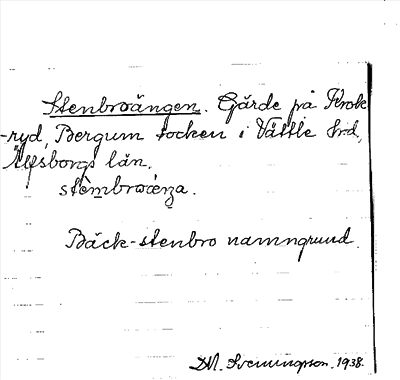 Stenbroängen. Gärde på Krok
-ryd, Bergum socken i Vättle hrd,
Älfsborgs län.
stèmbroǽnza.
Bäck-stenbro namngrund.
D.M. Svenungsson. 1938.